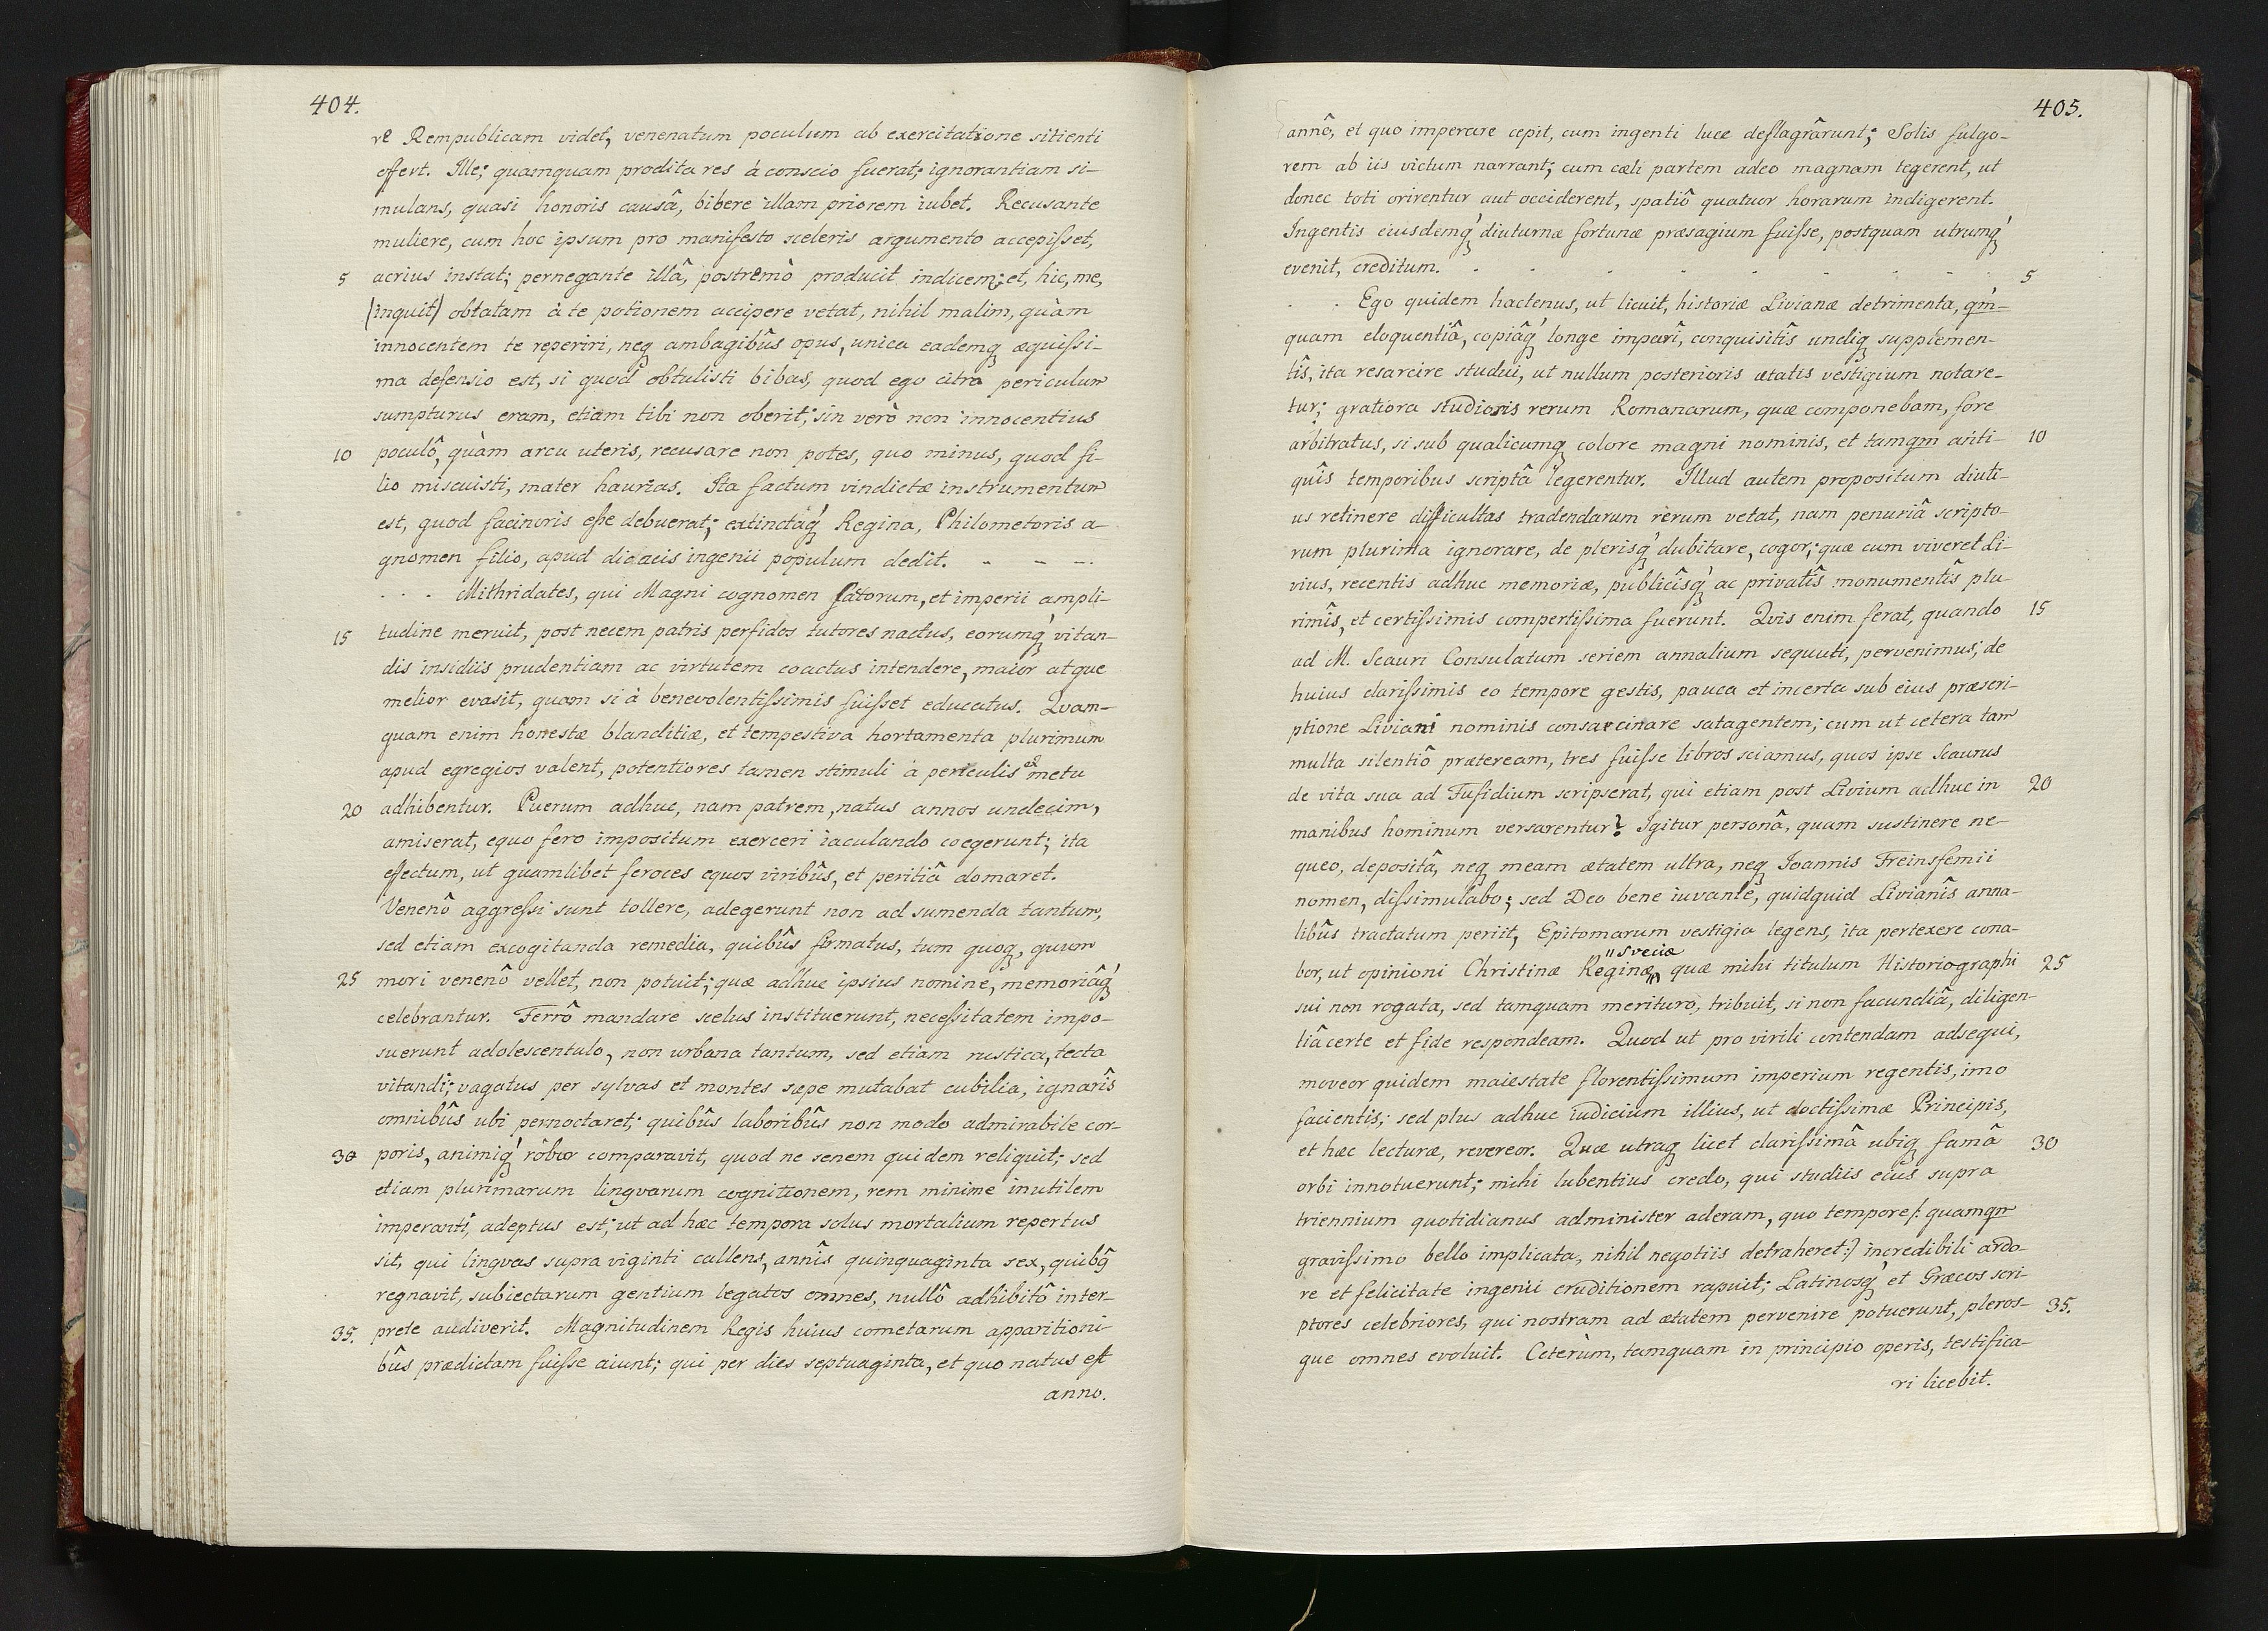 404.
re Rempublicam videt, venenatum poculum ab exercitatione sitienti
offert. Ille; quamquam prodita res à conscio fuerat; ignorantiam si-
mulans, quasi honoris causâ, bibere illam priorem iubet. Recusante
muliere, cum hoc ipsum pro manifesto sceleris argumento accepiſset,
5 acrius instat; pernegante illâ, postremò producit indicem; et, hic, me,
(inquit) oblatam à te potionem accipere vetat, nihil malim, quàm
innocentem te reperiri, neq ambagibûs opus, unica eademq æquiſsi-
ma defensio est, si quod obtulisti bibas, quod ego citra periculum
sumpturus eram, etiam tibi non oberit; sin verò non innocentius
10 poculô, quàm arcu uteris, recusare non potes, quo minus, quod fi-
lio miscuisti, mater haurias. Ita factum vindictæ instrumentum
est, quod facinoris eſse debuerat; extinctáq́ Regina, Philometoris a-
gnomen filio, apud dicacis ingenii populum dedit. - - -.
. . . Mithridates, qui Magni cognomen fatorum, et imperii ampli-
15 tudine meruit, post necem patris perfidos tutores nactus, eorumq́ vitan-
dis insidiis prudentiam ac virtutem coactus intendere, maior atque
melior evasit, quam si à benevolentiſsimis fuiſset educatus. Qvam-
quam enim honestæ blanditiæ, et tempestiva hortamenta plurimum
apud egregios valent, potentiores tamen stimuli à periculis et metu
20 adhibentur. Puerum adhuc, nam patrem, natus annos undecim,
amiserat, equo fero impositum exerceri iaculando coegerunt; ita
effectum, ut quamlibet feroces equos viribûs, et peritiâ domaret.
Venenô aggreſsi sunt tollere, adegerunt non ad sumenda tantum,
sed etiam excogitanda remedia, quibûs firmatus, tum quoq, quum
25 mori venenô vellet, non potuit; quæ adhuc ipsius nomine, memoriâq́
celebrantur. Ferrô mandare scelus instituerunt, neceſsitatem impo-
suerunt adolescentulo, non urbana tantum, sed etiam rustica, tecta
vitandi; vagatus per sylvas et montes sæpe mutabat cubilia, ignarîs
omnibûs ubi pernoctaret; quibûs laboribûs non modo admirabile cor-
30 poris, animiq́ rôbur comparavit, quod ne senem quidem reliquit; sed
etiam plurimarum lingvarum cognitionem, rem minime inutilem
imperanti, adeptus est; ut ad hæc tempora solus mortalium repertus
sit, qui lingvas supra viginti callens, annîs quinquaginta sex, quibq
regnavit, subiectarum gentium legatos omnes, nullô adhibitô inter-
35. prete audiverit. Magnitudinem Regis huius cometarum apparitioni-
bûs prædictam fuiſse aiunt; qui per dies septuaginta, et quo natus eſt
anno.
405.
annô, et quo imperare cepit, cum ingenti luce deflagrârunt; Solis fulgo-
rem ab iis victum narrant; cum cæli partem adeo magnam tegerent, ut
donec toti orirentur aut occiderent, spatiô quatuor horarum indigerent.
Ingentis eiusdemq́ diuturnæ fortunæ præsagium fuiſse, postquam utrumq́
evenit, creditum. . . . . . . . 5
. . Ego quidem hactenus, ut licuit, historiæ Livianæ detrimenta, qm̀-
quam eloquentiâ, copiâq́ longe imparî, conquisitîs undiq supplemen-
tîs, ita resarcire studui, ut nullum posterioris ætatis vestigium notare-
tur; gratiora studiosis rerum Romanarum, quæ componebam, fore
arbitratus, si sub qualicumq colore magni nominis, et tamqm anti- 10
quîs temporibus scriptâ legerentur. Illud autem propositum diuti-
us retinere difficultas tradendarum rerum vetat, nam penuriâ scripto-
rum plurima ignorare, de plerisq́ dubitare, cogor; quæ cum viveret Li-
vius, recentis adhuc memoriæ, publicîsq́ ac privatîs monumentîs plu-
rimîs, et certiſsimis compertiſsima fuerunt. Qvis enim ferat, quando 15
ad M. Scauri Consulatum seriem annalium sequuti, pervenimus, de
huius clariſsimis eo tempore gestis, pauca et incerta sub eius præscri-
ptione Liviani nominis consarcinare satagentem; cum ut cetera tam
multa silentiô præteream, tres fuiſse libros sciamus, quos ipse Scaurus
de vita sua ad Fufidium scripserat, qui etiam post Livium adhuc in 20
manibus hominum versarentur? Igitur personâ, quam sustinere ne-
queo, depositâ, neq meam ætatem ultra, neq Ioannis Freinsfemii
nomen, diſsimulabo; sed Deo bene iuvante, quidquid Livianîs anna-
libûs tractatum periit, Epitomarum vestigia legens, ita pertexere cona-
"Sveciæ
bor, ut opinioni Christinæ Reginæ, quæ mihi titulum Historiographi 25
sui non rogata, sed tamquam merituro, tribuit, si non facundiâ, diligen-
tiâ certe et fide respondeam. Quod ut pro virili contendam adsequi,
moveor quidem maiestate florentiſsimum imperium regentis, imo
facientis; sed plus adhuc iudicium illius, ut doctiſsimæ Principis,
et hæc lecturæ, revereor. Quæ utraq licet clariſsimâ ubiq famâ 30
orbi innotuerunt; mihi lubentius credo, qui studiis eius supra
triennium quotidianus administer aderam, quo tempore /: quamqm
graviſsimo bello implicata, nihil negotiis detraheret :/ incredibili ardo-
re et felicitate ingenii eruditionem rapuit; Latinosq́ et Græcos scri-
ptores celebriores, qui nostram ad ætatem pervenire potuerunt, pleros- 35.
que omnes evoluit. Ceterùm, tamquam in principio operis, testifica-
ri licebit.